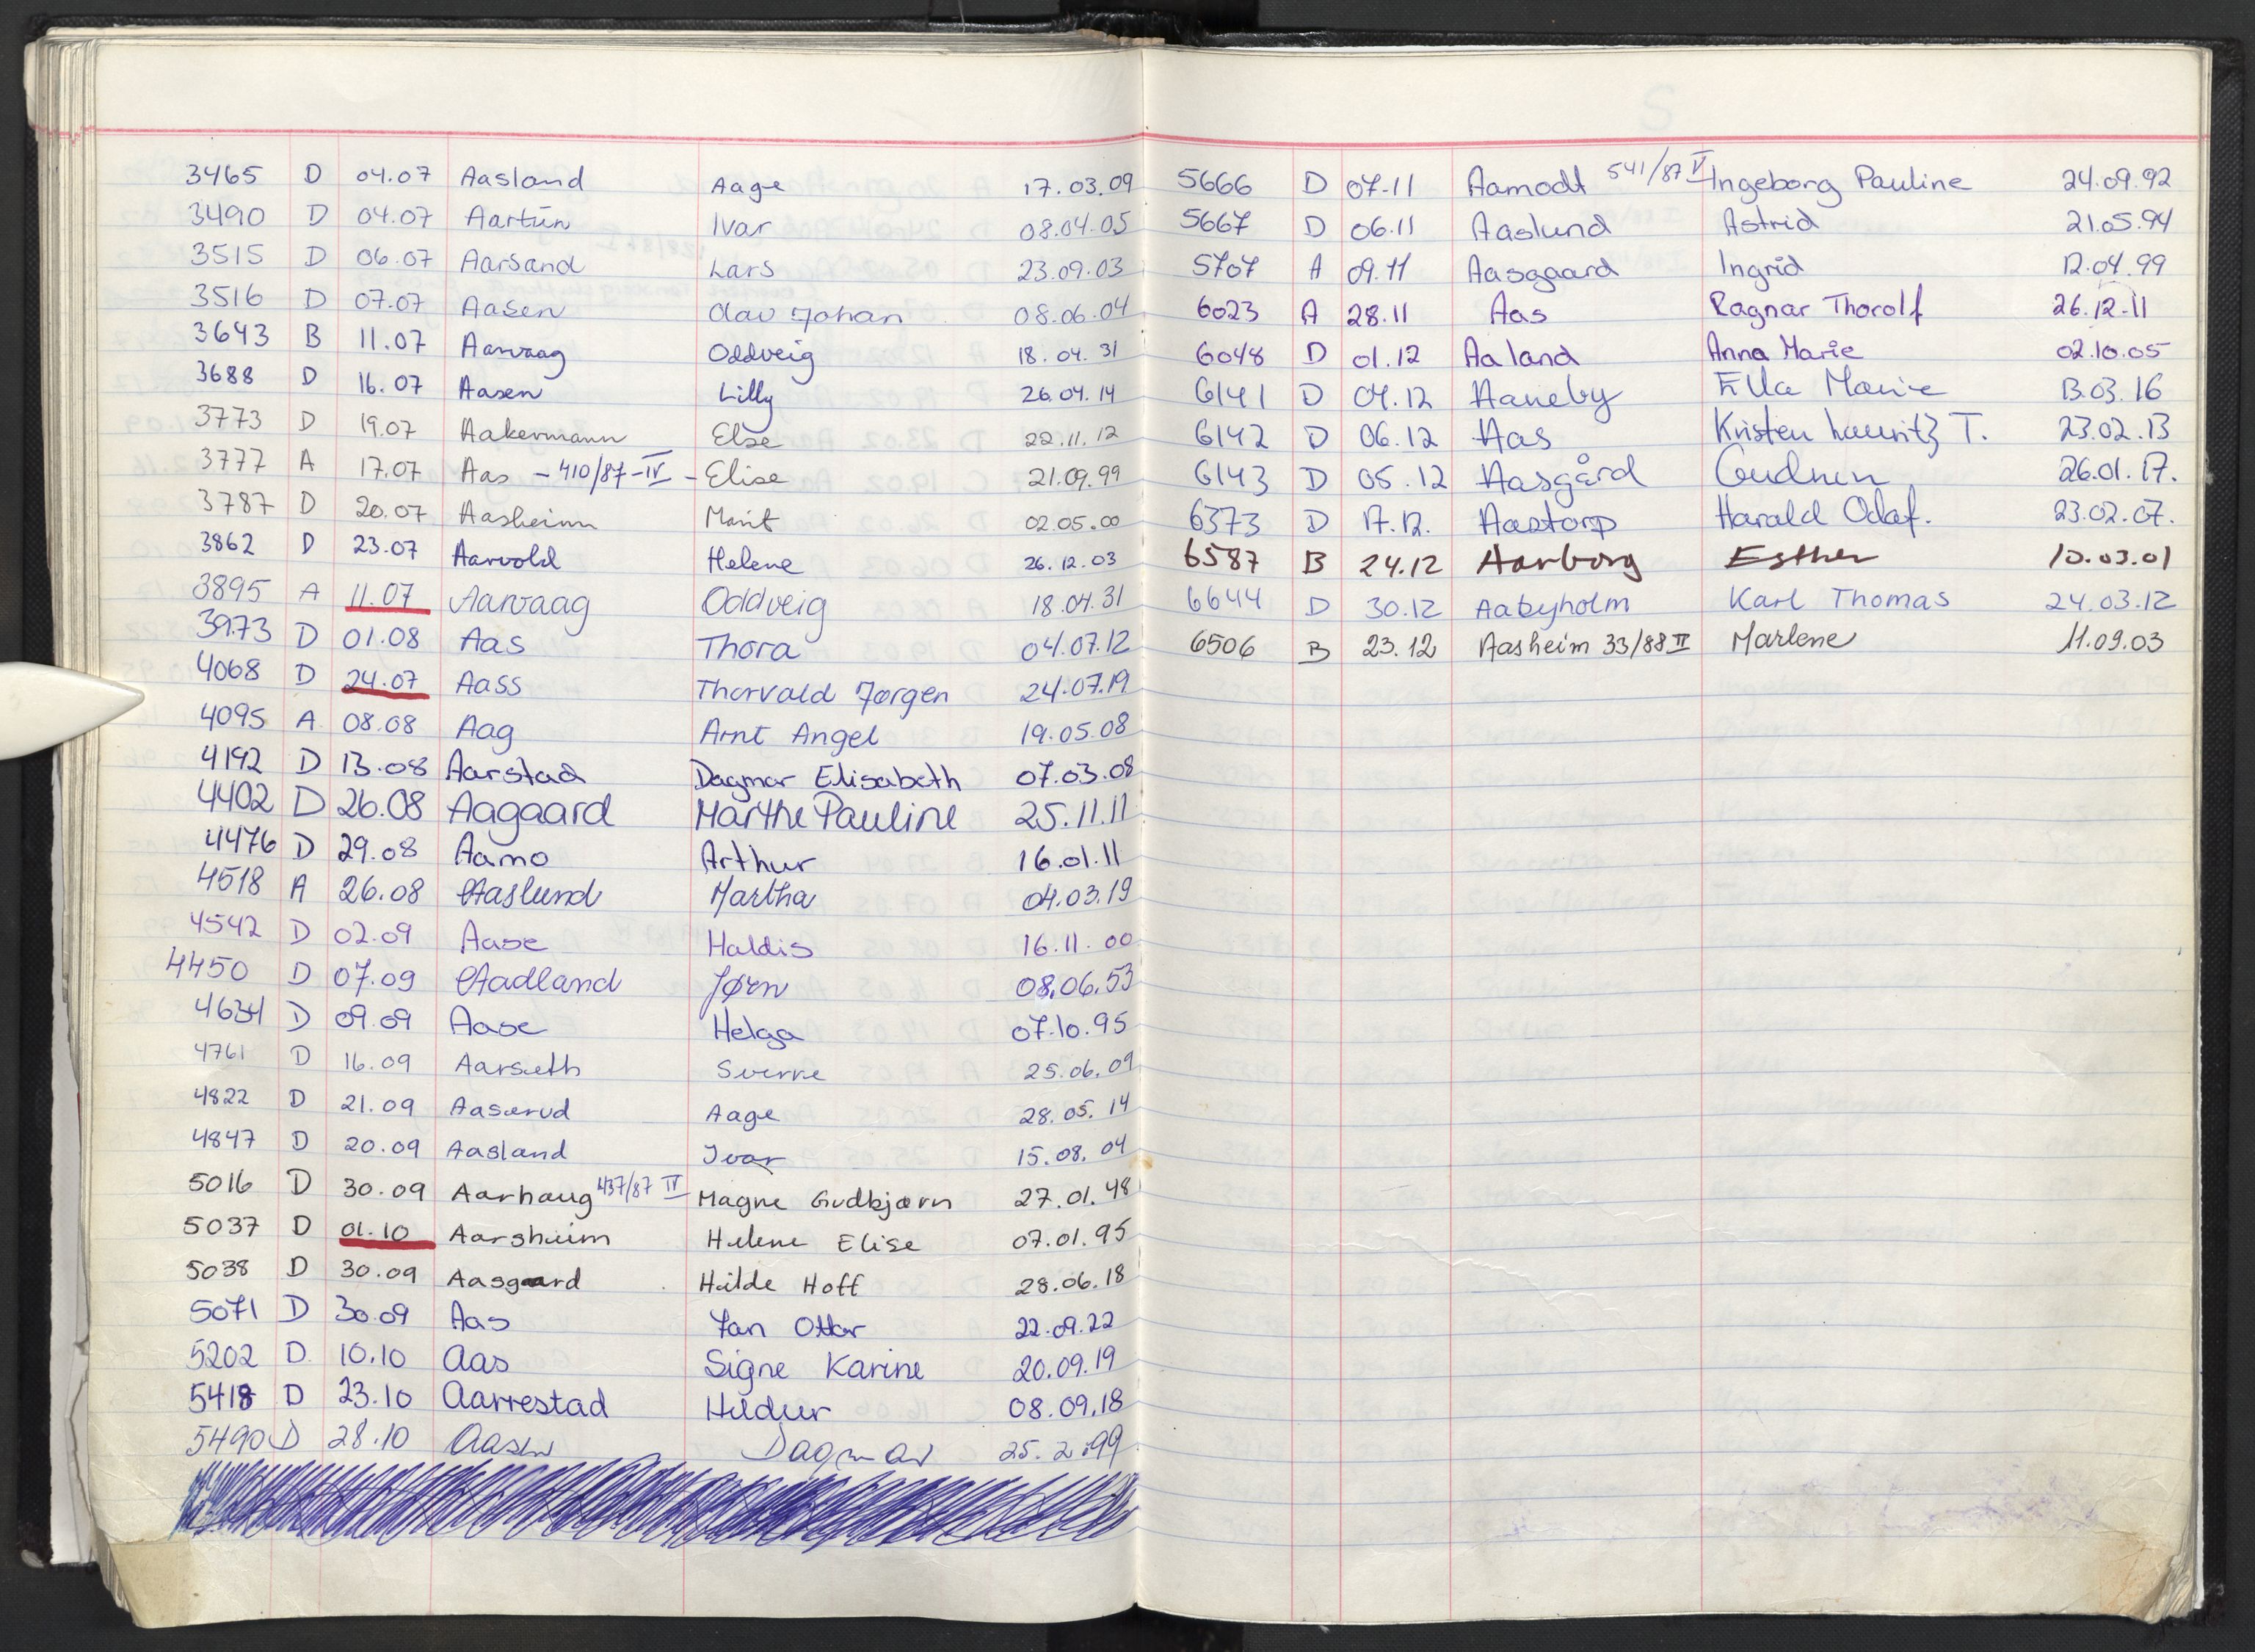 3465 D 04.07 Aasland Aage 17.03.09
3490 D 04.07 Aartun Ivar 08.04.05
3515 D 06.07 Aarsand Lars 23.09.03
3516 D 07.07 Aasen Olav Johan 08.06.04
3643 B 11.07 Aarvaag Oddveig 18.04.31
3688 D 16.07 Aasen Lilly 26.04.14
3773 D 19.07 Aakermann Else 22.11.12
3777 A 17.07 Aas - 410/87 - IV - Elise 21.09.99
3787 D 20.07 Aasheim Marit 02.05.00
3862 D 23.07 Aarvold Helene 26.12.03
3895 A 11.07 Aarvaag Oddveig 18.04.31
3973 D 01.08 Aas Thora 04.07.12
4068 D 24.07 Aass Thorvald Jørgen 24.07.19
4095 A 08.08 Aag Arnt Angel 19.05.08
4192 D 13.08 Aarstad Dagmar Elisabeth 07.03.08
4402 D 26.08 Aagaard Marthe Pauline 25.11.11
4476 D 29.08 Aamo Arthur 16.01.11
4518 A 26.08 Aaslund Martha 04.03.19
4542 D 02.09 Aase Haldis 16.11.00
4450 D 07.09 Aadland Jørn 08.06.53
4634 D 09.09 Aase Helga 07.10.95
4761 D 16.09 Aarseth Sverre 25.06.09
4822 D 21.09 Aaserud Aage 28.05.14
4847 D 20.09 Aasland Ivar 15.08.04
5016 D 30.09 Aarhaug 437/87 IV Magne Gudbjørn 27.01.48
5037 D 01.10 Aarsheim Helene Elise 07.01.95
5038 D 30.09 Aasgaard Hilde Hoff 28.06.18
5071 D 30.09 Aas Jan Ottar 22.09.22
5202 D. 10.10 Aas Signe Karine 20.09.19
5418 D 23.10 Aarrestad Hildur 08.09.18
5490 D 28.10 Aasen Dagmar 25.2.99
5666 D 07.11 Aamodt 541/87 V Ingeborg Pauline 24.09.92
5667 D 06.11 Aaslund Astrid 21.05.94
5707 A 09.11 Aasgaard Ingrid 12.04.99
6023 A 28.11 Aas Ragnar Thorolf 26.12.11
6048 D 01.12 Aaland Anna Marie 02.10.05
6141 D 04.12 Aaneby Ella Marie 13.03.16
6142 D 06.12 Aas Kristen Lauritz T. 23.02.13
6143 D 05.12 Aasgård Gudrun 26.01.17.
6373 D 17.12. Aastorp Harald Odaf. 23.02.07.
6587 B 24.12 Aarborg Esther 10.03.01
6644 D 30.12 Aabyholm Karl Thomas 24.03.12
6506 B 23.12 Aasheim 33/88 II Marlene 11.09.03